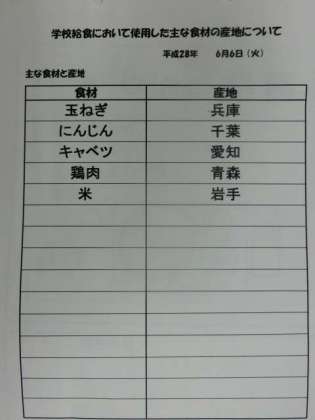 学校給食において使用した主な食材の産地について
平成28年 6月6日（火）
主な食材と産地
食材 産地
玉ねぎ 兵庫
にんじん 千葉
キャベツ 愛知
鶏肉 青森
米 岩手